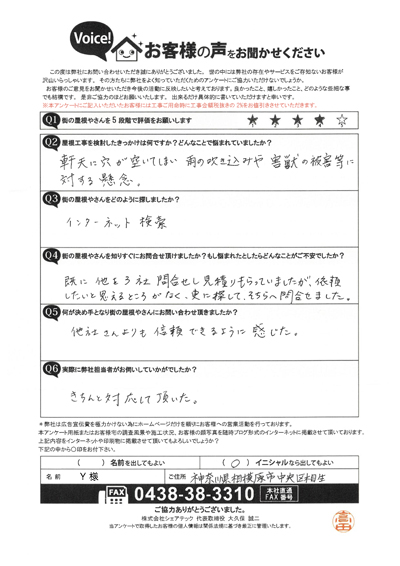 Voice!
お客様の声をお聞かせください
この度は弊社にお問い合わせいただき誠にありがとうございました。世の中には弊社の存在やサービスをご存知ないお客様が
沢山いらっしゃいます。その方たちに弊社をよく知っていただくためのアンケートにご協力いただけないでしょうか。
お客様のご意見をお聞かせいただき今後の活動に反映したいと考えております。良かったこと、嬉しかったこと、どのような些細な事
でも結構です。是非ご協力のほどお願いいたします。出来るだけ具体的に書いていただけますと幸いです。
※本アンケートにご記入いただいたお客様には工事ご用命時に工事金額税抜きの2%をお値引きさせていただきます。
Q1 街の屋根やさんを5段階で評価をお願いします ★ ★ ★ ★ ☆
Q2 屋根工事を検討したきっかけは何ですか?どんなことで悩まれていましたか?
軒天に穴が空いてしまい 雨の吹き込みや 害獣の被害等に
対する懸念。
Q3 街の屋根やさんをどのように探しましたか?
インターネット検索
Q4 街の屋根やさんを知りすぐにお問合せ頂けましたか?もし悩まれたとしたらどんなことがご不安でしたか?
既に他を3社問合せし見積りもらっていましたが、依頼
したいと思えるところがなく、更に探して、そちらへ問合せました。
Q5 何が決め手となり街の屋根やさんにお問い合わせ頂きましたか?
他社さんよりも信頼できるように感じた。
Q6 実際に弊社担当者がお伺いしていかがでしたか?
きちんと対応して頂いた。
＊弊社は広告宣伝費を極力かけない為にホームページだけを頼りにお客様への営業活動を行っております。
本アンケート用紙またはお客様宅の調査風景や施工状況、お客様の顔写真を随時ブログ形式のインターネットに掲載させて頂いております。
上記内容をインターネットや印刷物に掲載させて頂いてもよろしいでしょうか?
下記の中から〇印をお付け下さい。
(　　) 名前を出してもよい
( 〇 ) イニシャルなら出してもよい
名前 Y様
ご住所 神奈川県相模原市中央区相生
FAX 0438-38-3310 本社直通 FAX番号
ご協力ありがとうございました。
株式会社シェアテック 代表取締役 大久保 誠二
当アンケートで取得したお客様の個人情報は関係法規に基づき厳正に管理いたします。